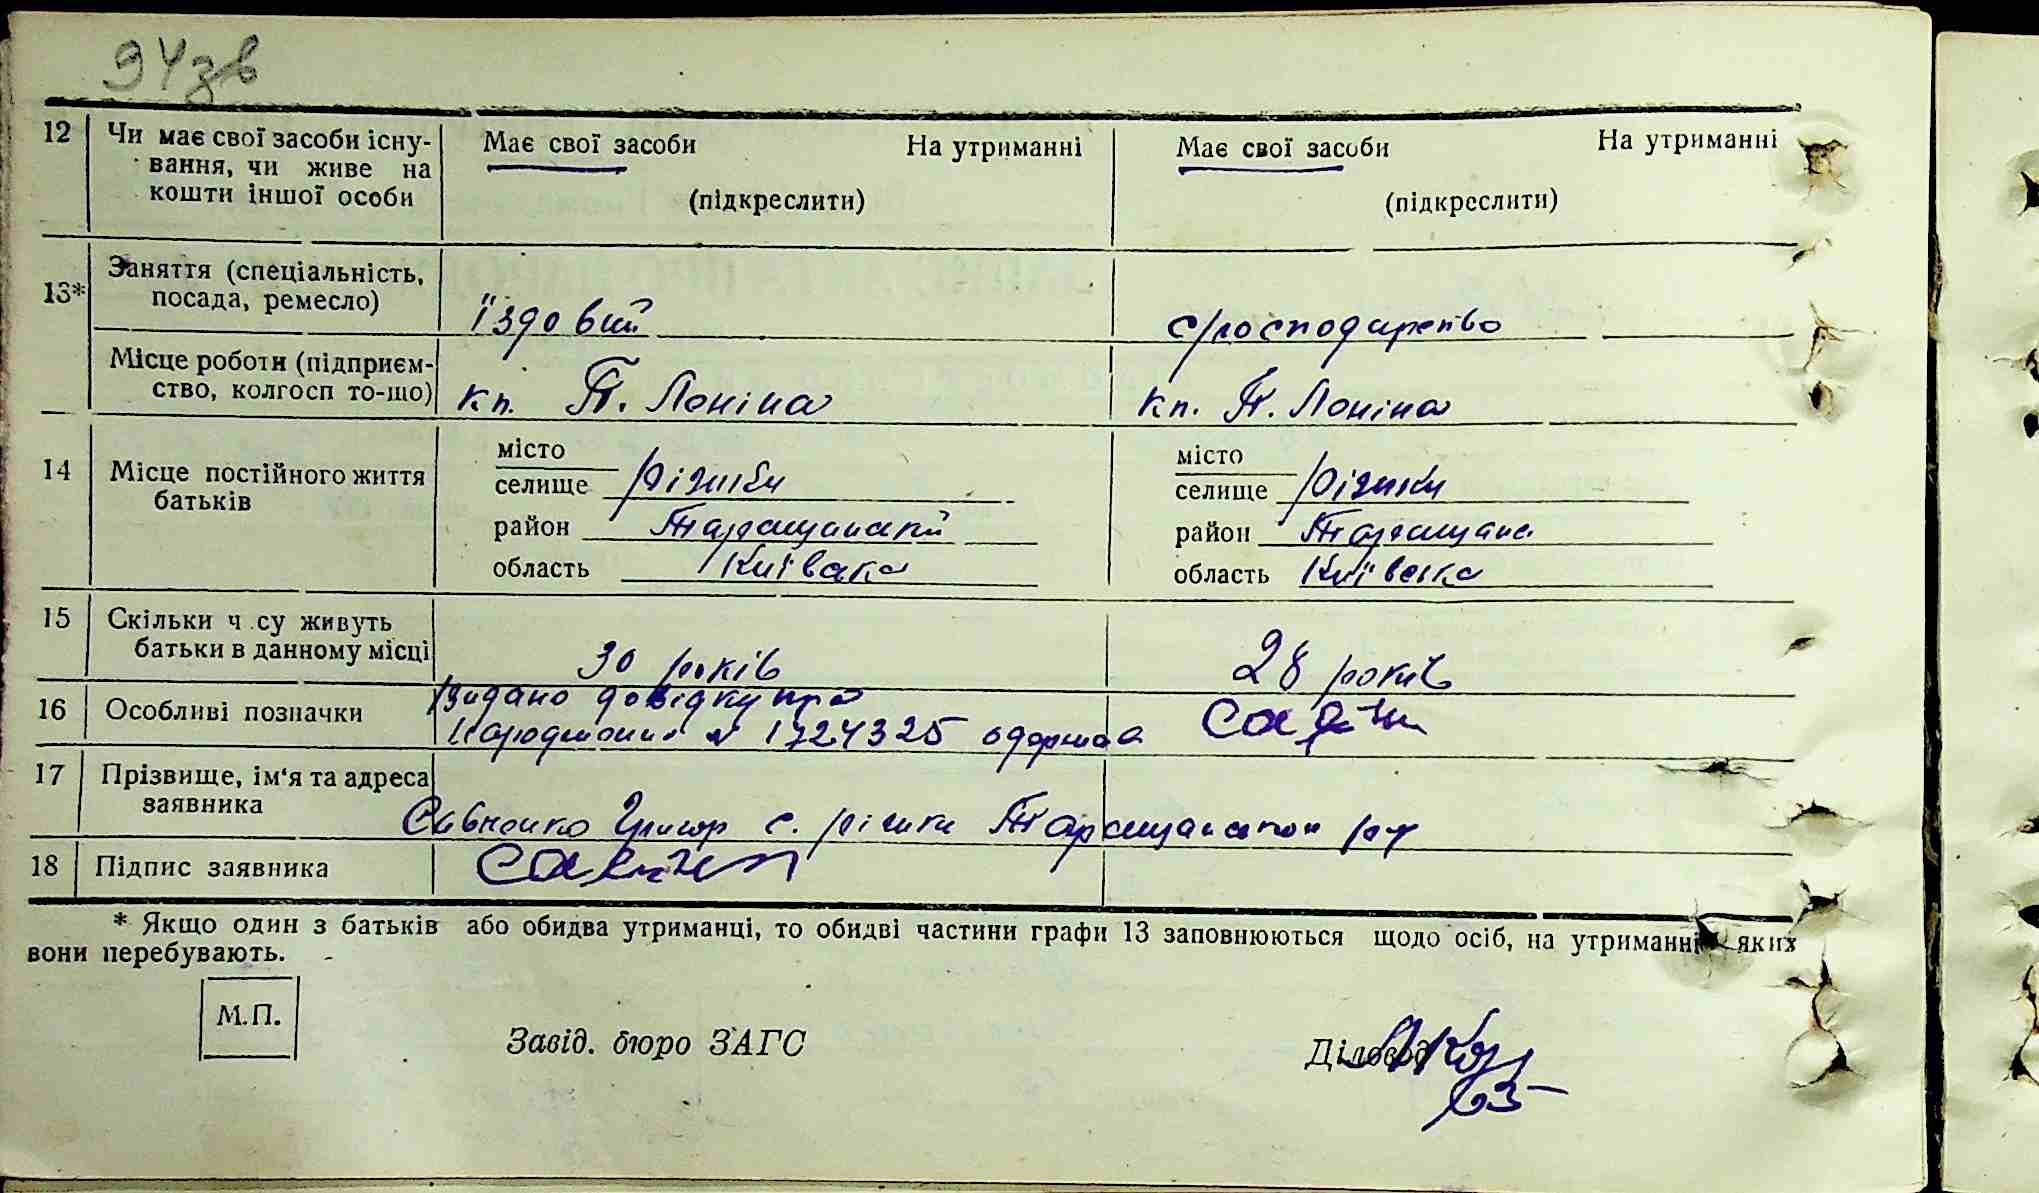 94зв
12 Чи має свої засоби існу- Має свої засоби На утриманні Має свої засоби На утриманні
вання, чи живе на
кошти іншої особи (підкреслити) (підкреслити)
13* Заняття (спеціальність,
посада, ремесло) їздовий с/господарство
Місце роботи (підприєм-
ство, колгосп то-що) кп. Леніна кп. Леніна
місто місто
14 Місце постійного життя селище Ріжки селище Ріжки
батьків
район Таращанский район Таращанс
область Київска область Київска
15 Скільки ч су живуть
батьки в данному місці 30 років 28 років
видано довідку про
16 Особливі позначки
народження № 1724325 одержав
17 Прізвище, ім‘я та адреса
заявника
Савченко Григор с. ріжки
18 Підпис заявника
* Якщо один з батьків або обидва утриманці, то обидві частини графи 13 заповнюються щодо осіб, на утриманні яких
вони перебувають.
М.П.
Завід. бюро ЗАГС Діловод